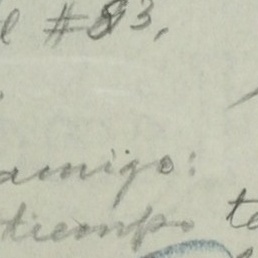 #83,
amigo:
tiempo te